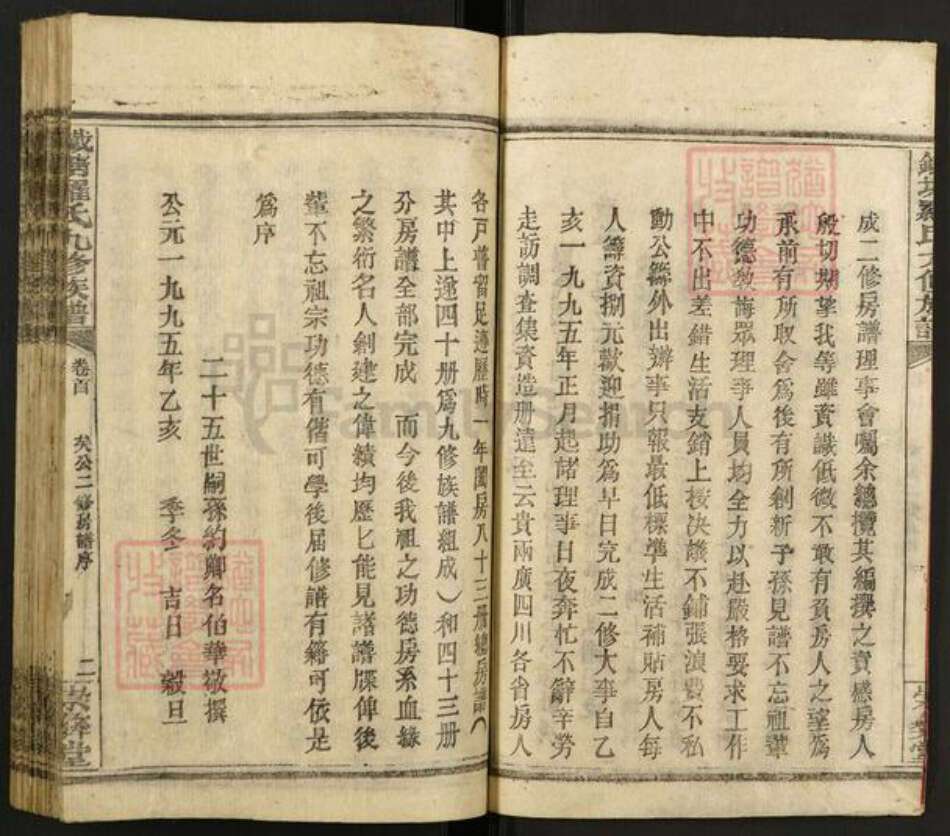 成二修房譜理事會囑余總攬其編撰之責感房人
殷切期望我等雖資識低微不敢有負房人之望為
承前有所取舍為後有所創新子孫見譜不忘祖輩
功德教誨眾理事人員均全力以赴嚴格要求工作
中不出差錯生活支銷上按決議不鋪張浪費不私
動公錢外出辦事只報最低標準生活補貼房人每
人籌資捌元歡迎捐助為早日完成二修大事自乙
亥一九九五年正月起諸理事日夜奔忙不辭辛勞
走訪調查集資造册遠至云貴兩廣四川各省房人
各戶普留足迹歷時一年闔房八十三册總房譜(
其中上途四十册為九修族譜組成)和四十三册
分房譜全部完成 而今後我祖之功德房系血緣
之繁衍名人創建之偉績均歷匕能見諸譜牒俾後
輩不忘祖宗功德有偕可學後屆修譜有籍可依是
為序
二十五世嗣孫約卿名伯華敬撰
公元一九九五年乙亥 季冬 吉日 穀旦
羅氏九修族譜
卷首
矣公二修房譜序
二